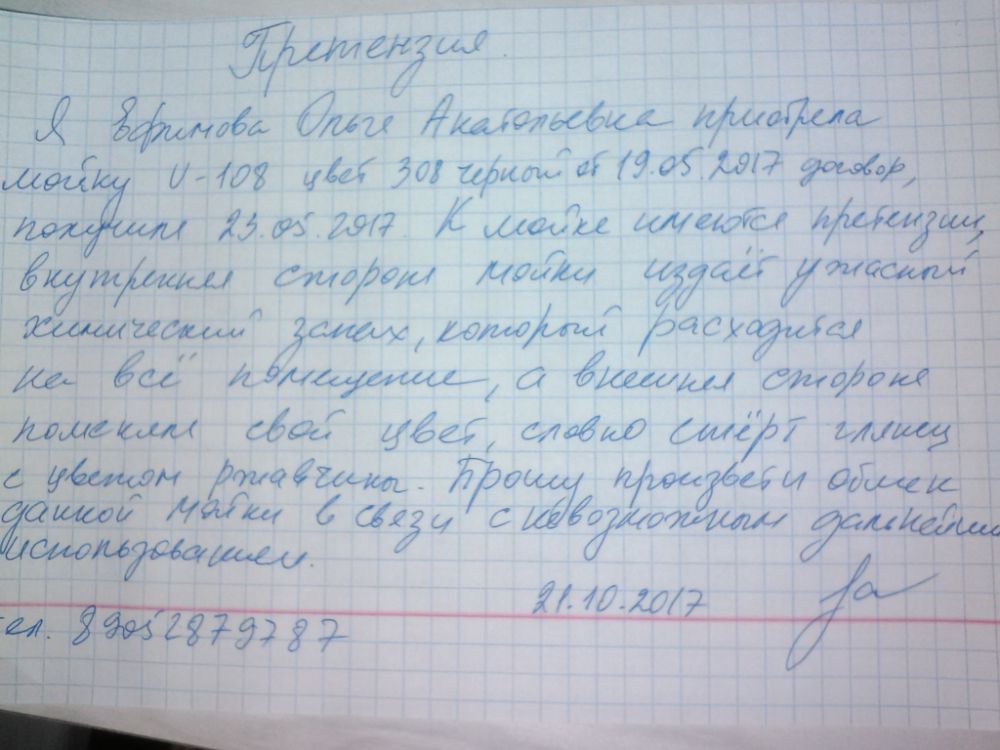 Претензия.
Я Ефимова Ольга Анатольевна приобрела
мойку U-108 цвет 308 черный от 19.05.2017 договор,
получила 23.05.2017. К мойке имеются претензии,
внутренняя сторона мойки издаёт ужасный
химический запах, который расходится
на всё помещение, а внешняя сторона
поменяла свой цвет, словно стёрт глянец
с цветом ржавчины. Прошу произвети обмен
данной мойки в связи с невозможным дальнейшим
использованием.
21.10.2017
тел. 89052879787